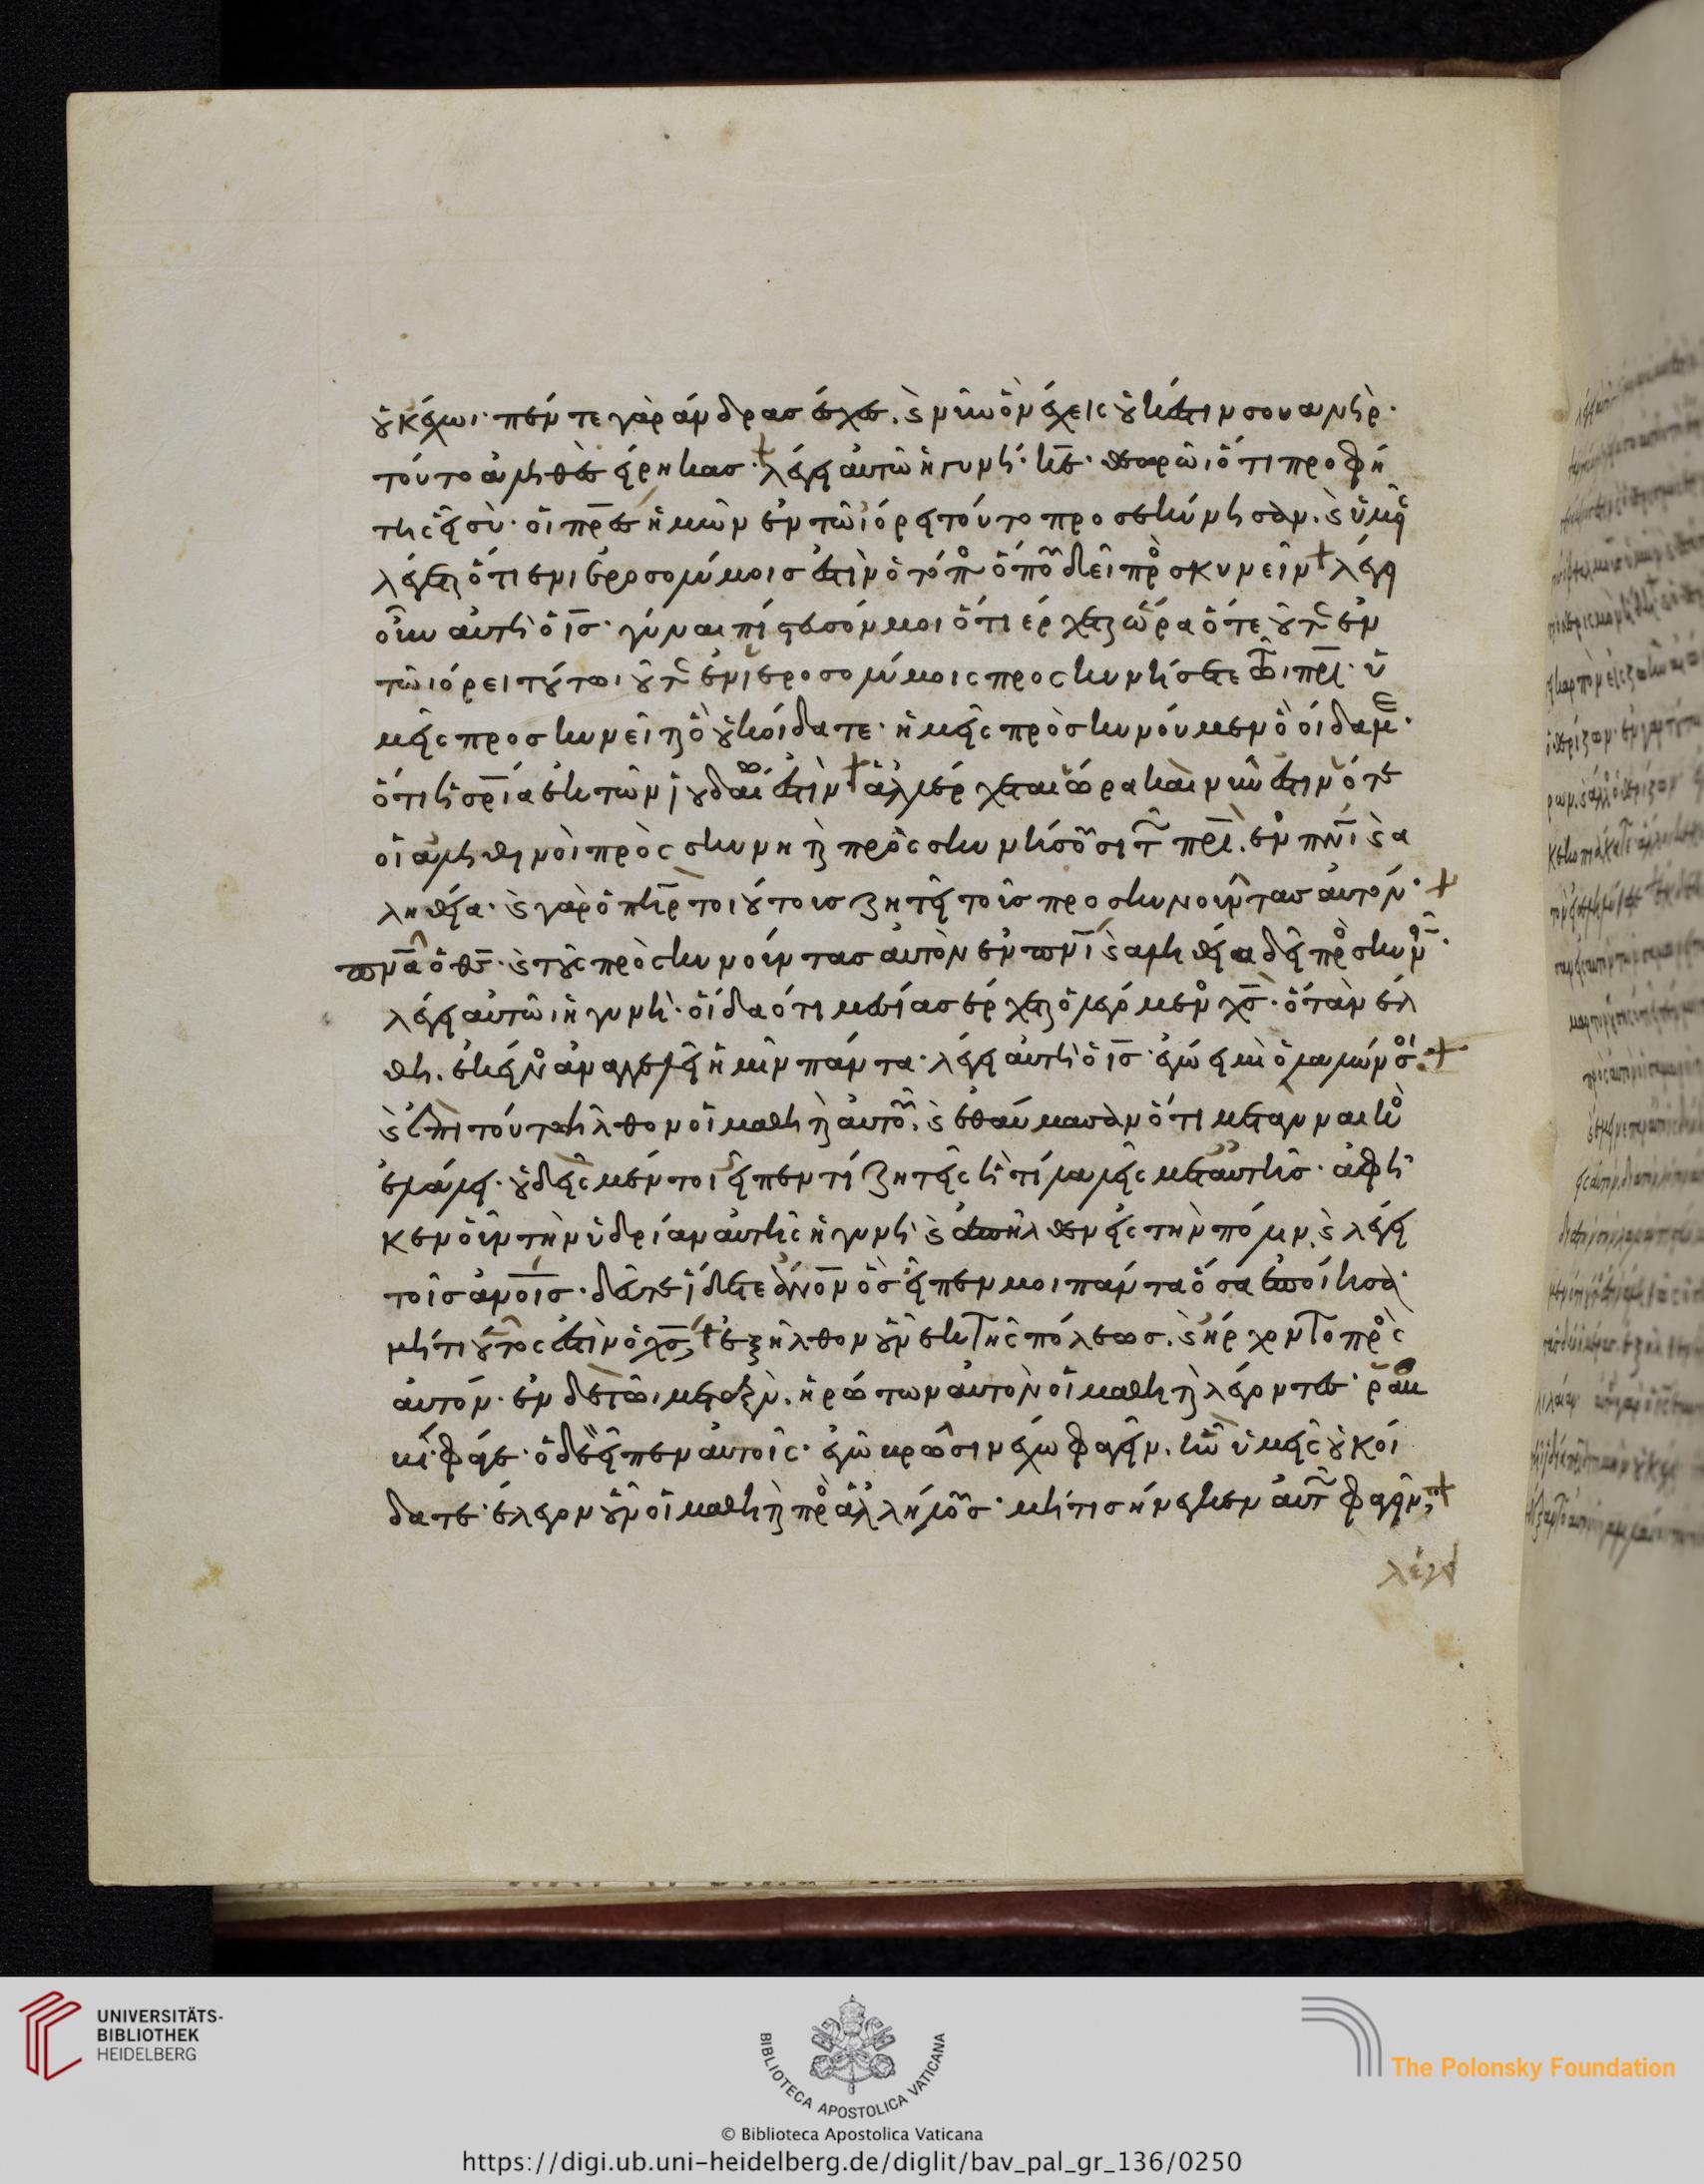 οὐκ ἔχω· πέντε γὰρ ἄνδρας ἔσχες. καὶ νῦν ὃν ἔχεις οὐκ ἔστιν σου ἀνήρ·
τοῦτο ἀληθὲς εἴρηκας· λέγει αὐτῶ ἡ γυνή· κε· θεωρῶ ὅτι προφή
της εἶ σύ· οἱ πρες ἡμῶν ἐν τῶ ὄρει τούτο προσεκύνησαν. καὶ ὑμεῖς
λέγετε ὅτι ἐν ἱεροσολύμοις ἐστὶν ὁ τόπος ὅπου δεῖ προσκυνεῖν λέγει
οὖν αὐτῆ ὁ ις· γύναι πίστευσόν μοι ὅτι ἔρχεται ὥρα ὅτε οὔτε ἐν
τῶ ὄρει τούτω οὔτε ἐν ἱεροσολύμοις προσκυνήσετε τῶ πρι· ὑ
μεῖς προσκυνεῖτε ὃ οὐκ οἴδατε· ἡμεῖς προσκυνοῦμεν ὃ οἴδαμεν·
ὅτι ἡ σρία ἐκ τῶν ἰουδαίων ἐστὶν ἀλλ' ἔρχεται ὥρα καὶ νῦν ἐστιν ὅτε
οἱ ἀληθινοὶ προσκυνηταὶ προσκυνήσουσι τῶ πρι. ἐν πνι καὶ α
ληθεία· καὶ γὰρ ὁ πηρ τοιούτοις ζητεῖ τοῖς προσκυνοῦντας αὐτόν·
πνα ὁ θς· καὶ τοὺς προσκυνοῦντας αὐτὸν ἐν πνι καὶ ἀληθεία δεῖ προσκυνεῖν·
λέγει αὐτῶ ἡ γυνή· οἶδα ὅτι μεσίας ἔρχεται ὁ λεγόμενος χς· ὅταν ἔλ
θη. ἐκεῖνος ἀναγγελεῖ ἡμῖν πάντα· λέγει αὐτῆ ὁ ις· ἐγώ εἰμι ὁ λαλῶν σοι·
καὶ ἐπὶ τούτω ἦλθον οἱ μαθηταὶ αὐτοῦ. καὶ ἐθαύμασαν ὅτι μετὰ γυναικὸς
ἐλάλει· οὐδεὶς μέντοι εἶπεν τί ζητεῖς ἢ τί λαλεῖς μετ' αὐτῆς· ἀφῆ
κεν οὖν τὴν ὑδρίαν αὐτῆς ἡ γυνὴ καὶ ἀπῆλθεν εἰς τὴν πόλιν. καὶ λέγει
τοῖς ανοις· δεῦτε ἴδετε ἄνον ὃς εἶπεν μοι πάντα ὅσα ἐποίησα·
μήτι οὗτος ἐστὶν ὁ χς; ἐξῆλθον οὖν ἐκ τῆς πόλεως. καὶ ἤρχοντο πρὸς
αὐτόν· ἐν δὲ τῶ μεταξὺ. ἠρώτων αὐτὸν οἱ μαθηταὶ λέγοντες· ραβ
βί· φάγε· ὁ δὲ εἶπεν αὐτοῖς· ἐγὼ βρῶσιν ἔχω φαγεῖν. ἣν ὑμεῖς οὐκ οἴ
δατε· ἔλεγον οὖν οἱ μαθηταὶ πρὸς ἀλλήλους· μήτις ἤνεγκεν αὐτῶ φαγεῖν;
λέγει
UNIVERSITÄTS-
BIBLIOTHEK
HEIDELBERG
BIBLIOTECA APOSTOLICA VATICANA
The Polonsky Foundation
© Biblioteca Apostolica Vaticana
https://digi.ub.uni-heidelberg.de/diglit/bav_pal_gr_136/0250